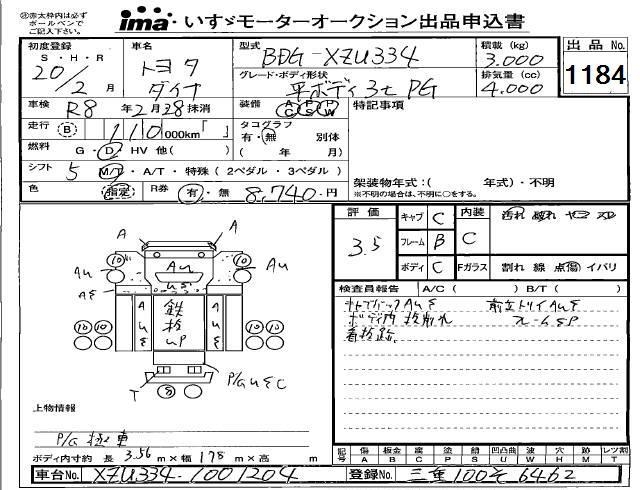 ※赤太枠内は必ず
ボールペンで
ご記入下さい。
ima いすゞモーターオークション出品申込書
初度登録 S・H・R 20/2月
車名 トヨタ ダイナ
型式 BDG-XZU334
グレード・ボディ形状 平ボディ3t PG
積載(kg) 3.000
排気量(cc) 4.000
出品No. 1184
車検 R8年2月28抹消
装備 AC PS PW
特記事項
走行 B 110,000km「 」
タコグラフ 有・無 別体 ( 年 月)
燃料 G・D・HV 他( )
シフト 5 M/T・A/T・特殊(2ペダル・3ペダル)
架装物年式:( 年式)・不明
※不明の場合は、不明に○をする。
色 指定 R券 有・無 8,740-円
評価 3.5
キャブ C 内装 C 汚れ 破れ ヤニ スレ
フレーム B
ボディ C Fガラス 割れ 線 点傷 イバリ
検査員報告 A/C( ) B/T( )
ボディ内 板削れ
看板跡
A A
10 10
AU AU AU
AE US
AUE 鉄板UP AUE
10 10 10 10
T 8 P/GUEC
上物情報
P/G 極東
ボディ内寸約 長 3.56 m×幅 178 m×高 m
記号 傷A 板金B 腐C 塗P 錆S 凹凸曲U 波W 穴H 跡M レツ割T
車台No. XZU334-1001204
登録No. 三重100そ6462